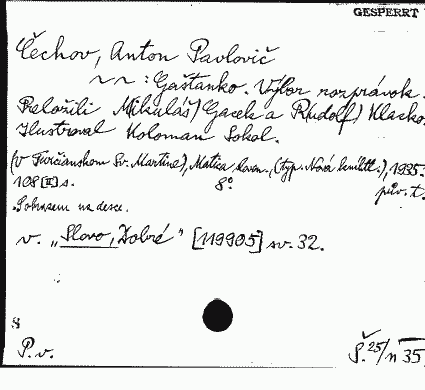 GESPERRT
Čechov, Anton Pavlovič
~ ~ : Gaštanko. Výbor rozprávok.
Preložili Mikuláš) Gacek a R(udolf) Klačko.
Ilustroval Koloman Sokol.
(v Turčianskom Sv. Martine), Matica sloven., (typ. Nová), 1935.
108 [II] s. 8° pův. t.
S obrazem na desce.
v. „Slovo, Dobré" [119905] sv. 32.
8
P. v. Š. 25/n 35